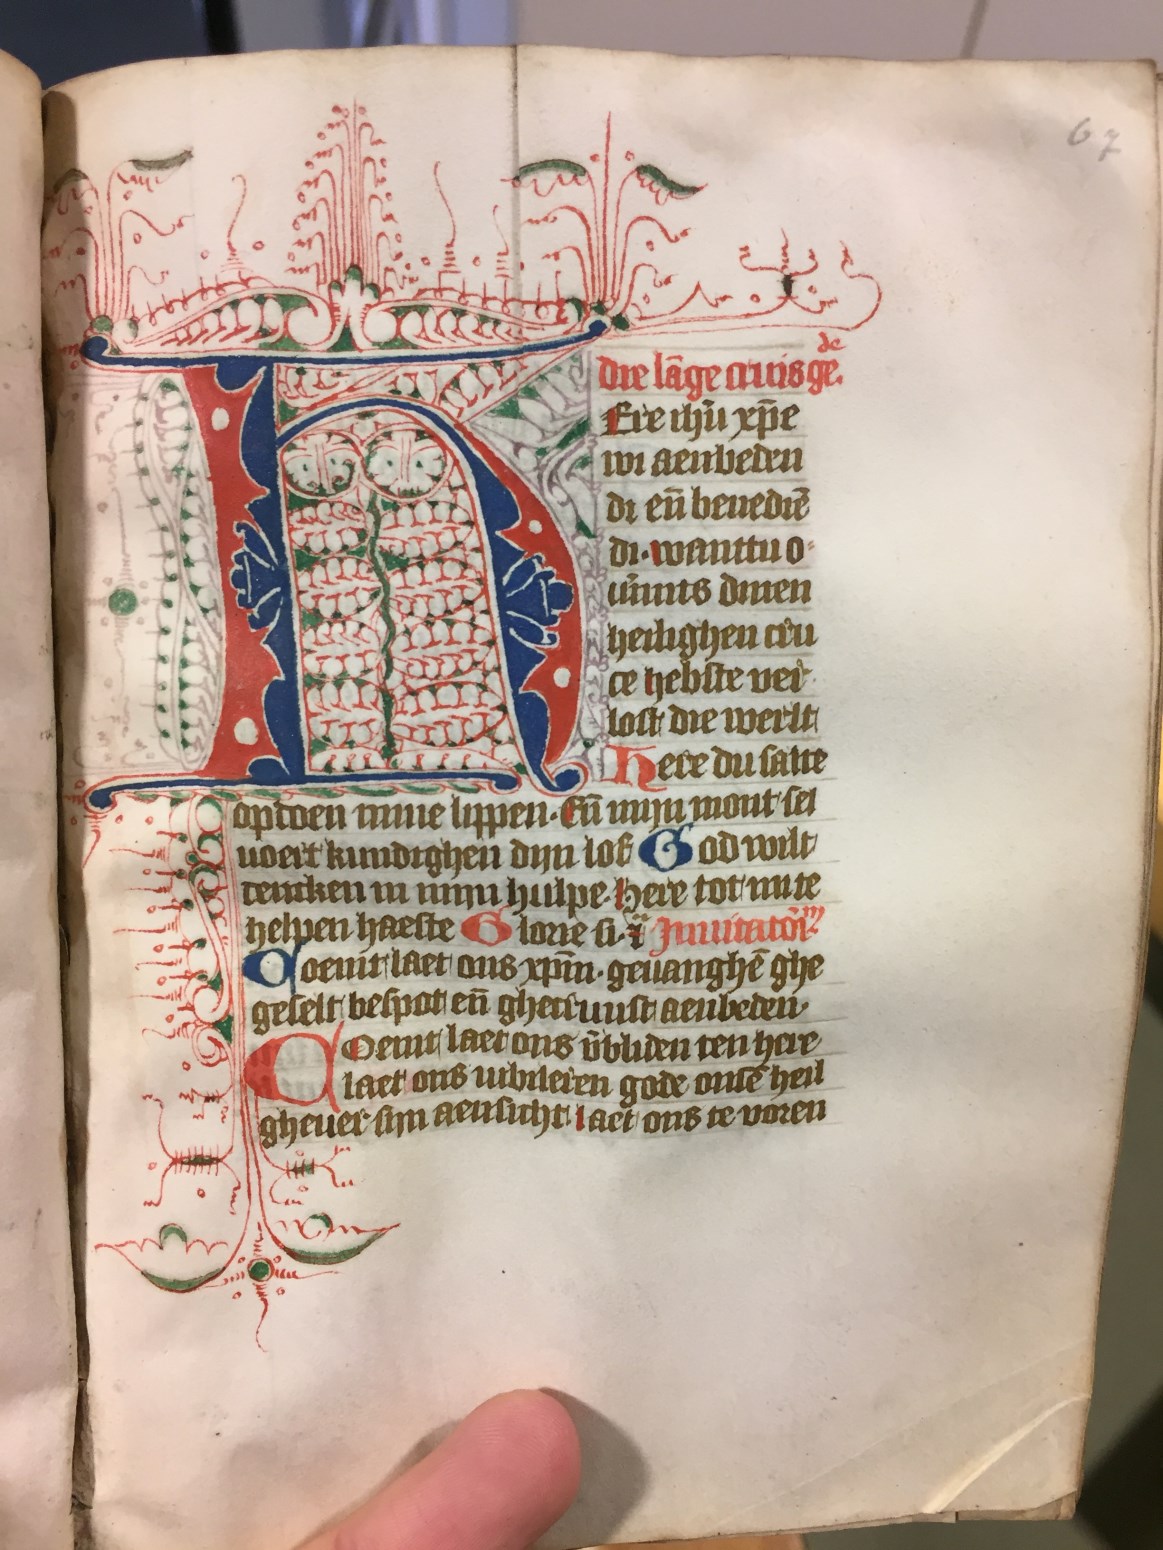 67
die lāge cruis ge
de
HEre ihū xp̄e
wi aenbeden
di en̄ benediē
di. wanttu o-
uermits dinen
heilighen cru
ce hebste ver
lost die werlt
Here du salte
opdoen mine lippen. En̄ mijn mont sel
voert kundighen dijn lof God wilt
dencken in mijn hulpe. Here tot mi te
helpen haeste Glorie si. Inuitatoriū
Coemt laet ons xpm̄. geuanghē ghe
geselt bespot en̄ ghecruust aenbeden.
Coemt laet ons v̄bliden ten here
laet ons iubileren gode onsē heil
gheuer sijn aensicht. laet ons te voren